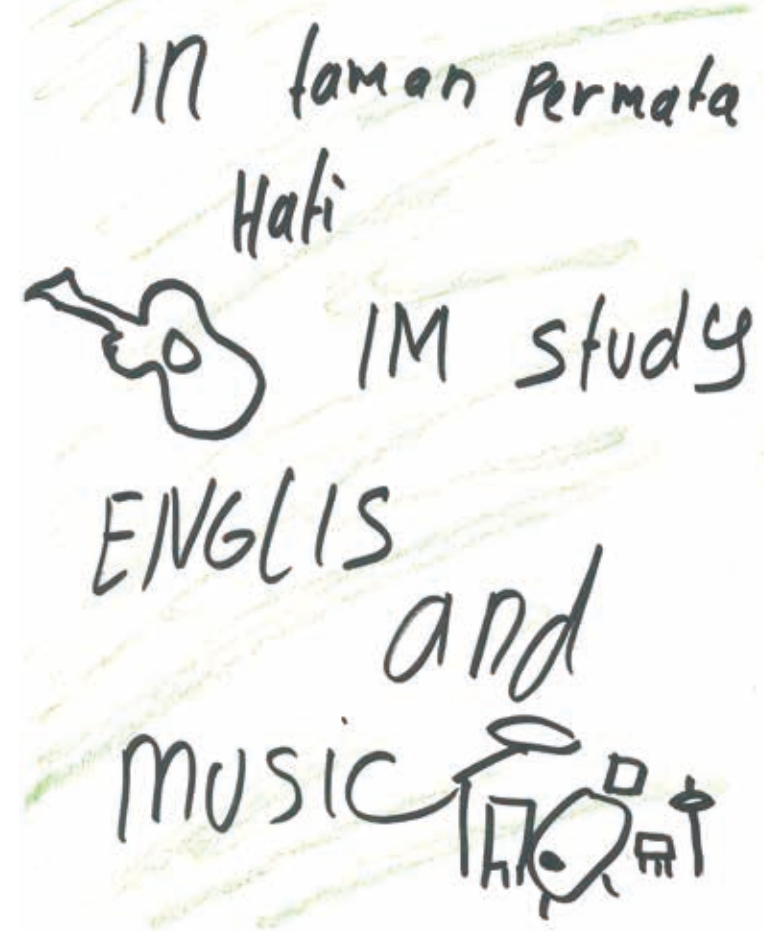 In taman Permata
Hati
IM study
ENGLIS
and
music